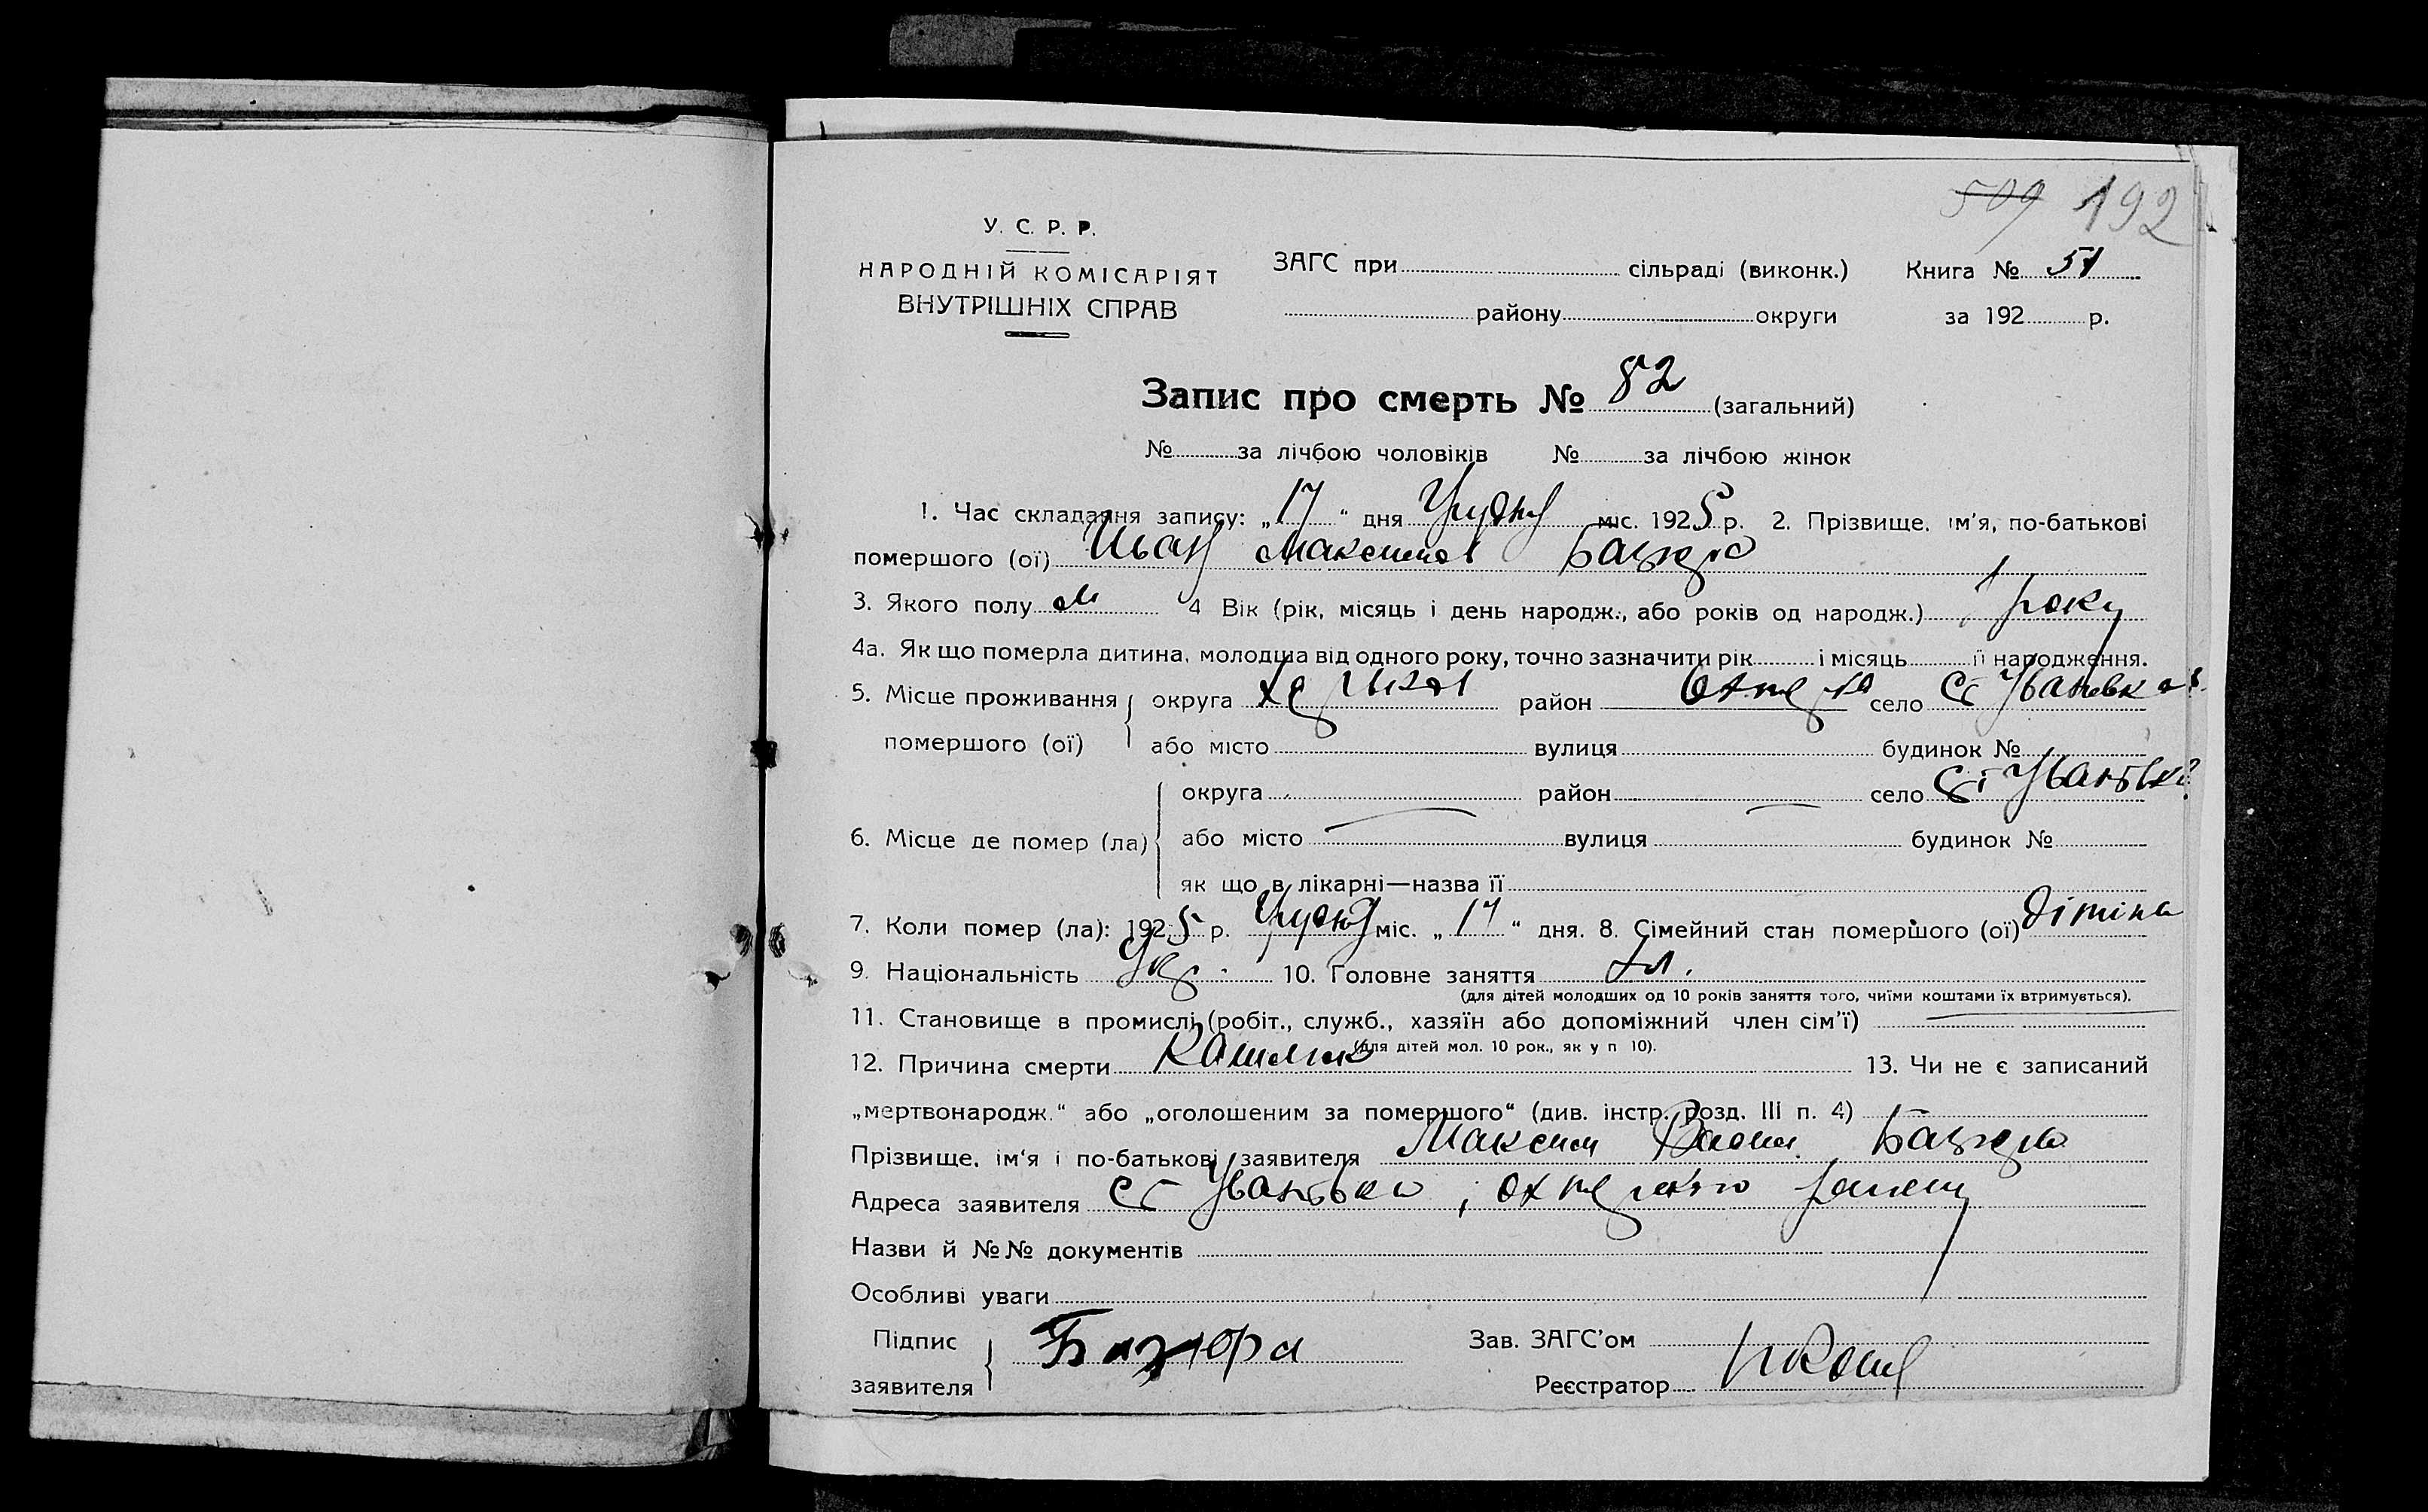 509 192
У. С. Р. Р.
НАРОДНІЙ КОМІСАРІЯТ
ВНУТРІШНІХ СПРАВ
ЗАГС при сільраді (виконк.) Книга № 51
району округи за 192 р.
Запис про смерть № 82 (загальний)
№ за лічбою чоловіків № за лічбою жінок
1. Час складання запису: „17“ дня Грудня міс. 1925 р. 2. Прізвище, ім'я, по-батькові
помершого (ої) Иван Максимов
3. Якого полу м 4 Вік (рік, місяць і день народж., або років од народж.) 1 року
4а. Як що померла дитина, молодша від одного року, точно зазначити рік і місяць її народження.
5. Місце проживання округа Херсон район село Ст Ивановка
помершого (ої) або місто вулиця будинок №
округа район село Ст
6. Місце де помер (ла) або місто вулиця будинок №
як що в лікарні—назва її
7. Коли помер (ла): 1925 р. Грудня міс. „17“ дня. 8. Сімейний стан помершого (ої) дітіна
9. Національність Укр. 10. Головне заняття хл.
(для дітей молодших од 10 років заняття того, чиїми коштами їх втримується).
11. Становище в промислі (робіт., служб., хазяїн або допоміжний член сім'ї)
(для дітей мол. 10 рок., як у п 10).
12. Причина смерти Кашлюк 13. Чи не є записаний
„мертвонародж.“ або „оголошеним за помершого“ (див. інстр. розд. III п. 4)
Прізвище, ім'я і по-батькові заявителя Максим
Адреса заявителя Ст району
Назви й №№ документів
Особливі уваги
Підпис
заявителя
Зав. ЗАГС'ом
Реєстратор